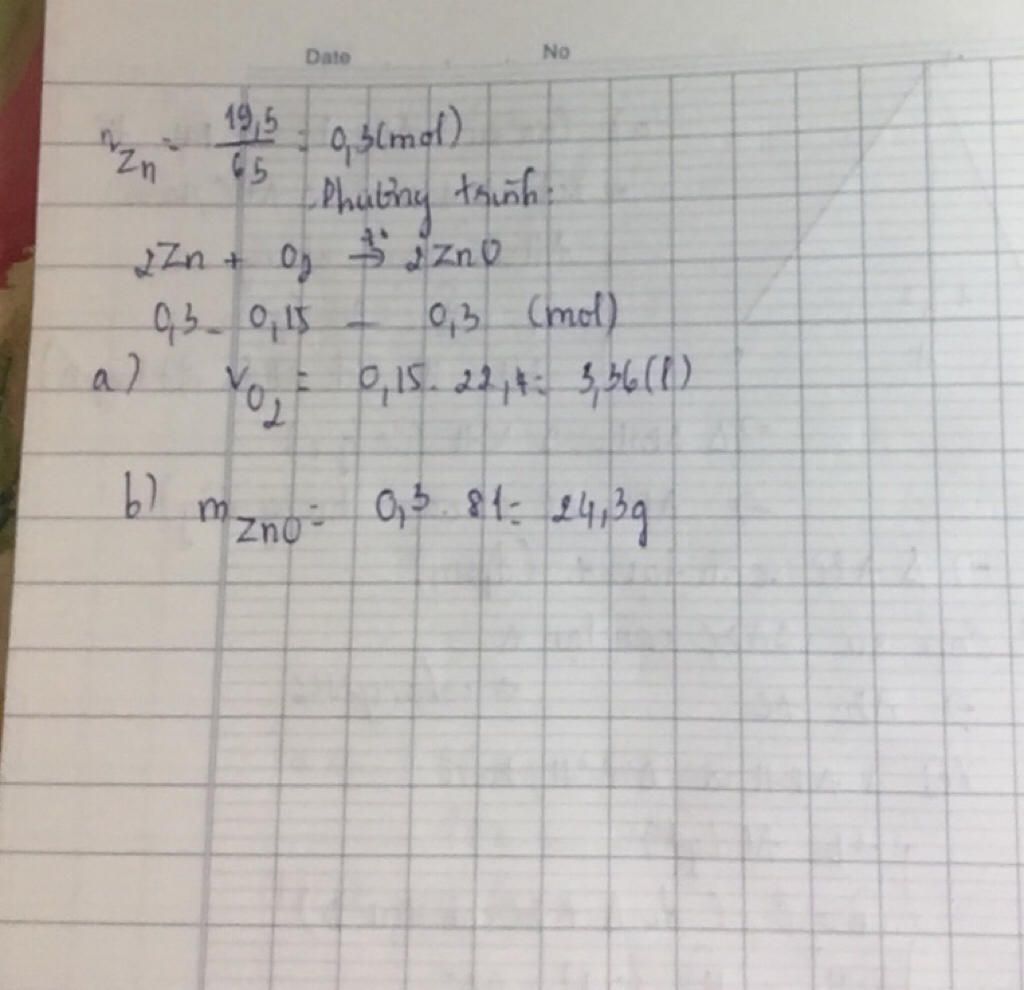 Date No
nZn = 19,5/65 = 0,3(mol)
Phương trình:
2Zn + O2 t°→ 2ZnO
0,3 - 0,15 - 0,3 (mol)
a) VO2 = 0,15 . 22,4 = 3,36(l)
b) mZnO = 0,3 . 81 = 24,3g